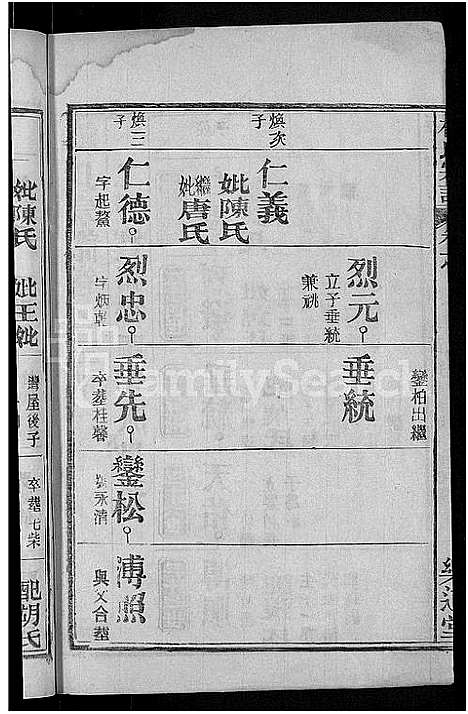 煥次子
仁義
妣陳氏
繼妣唐氏
煥三子
仁德
字起鰲
烈元
立子垂統
兼祧
烈忠
字炳章
垂統
鑾柏出繼
垂先
卒葬桂馨
鑾松
溥照
與父合葬
樂道堂
妣陳氏
妣王妣
灣屋後子
卒葬七柴
配胡氏
FamilySearch